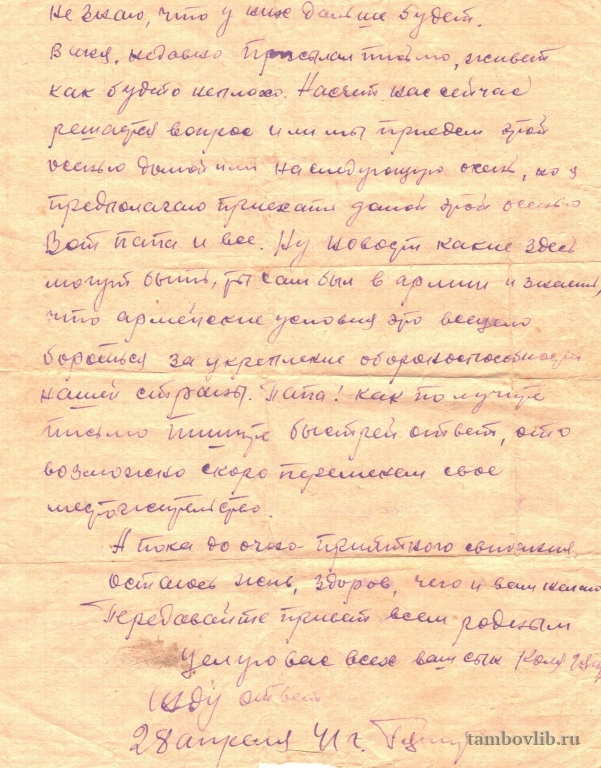 не знаю, что у них дальше будет.
Витя, недавно присылал письмо, живет
как будто неплохо. Насчет нас сейчас
решается вопрос или мы приедем этой
осенью домой или на следующую осень, но я
предполагаю приехать домой этой осенью
Вот папа и все. Ну новости какие здесь
могут быть, ты сам был в армии и знаешь,
что армейские условия это всецело
бороться за укрепление обороноспособности
нашей страны. Папа! как получите
письмо пишите быстрей ответ, а то
возможно скоро переменем свое
местожительство.
А пока до очно приятного свидания,
остаюсь жив, здоров, чего и вам желаю
Передавайте привет всем родным
Целую вас всех ваш сын Коля
Жду ответ
28 апреля 41 г.
tambovlib.ru